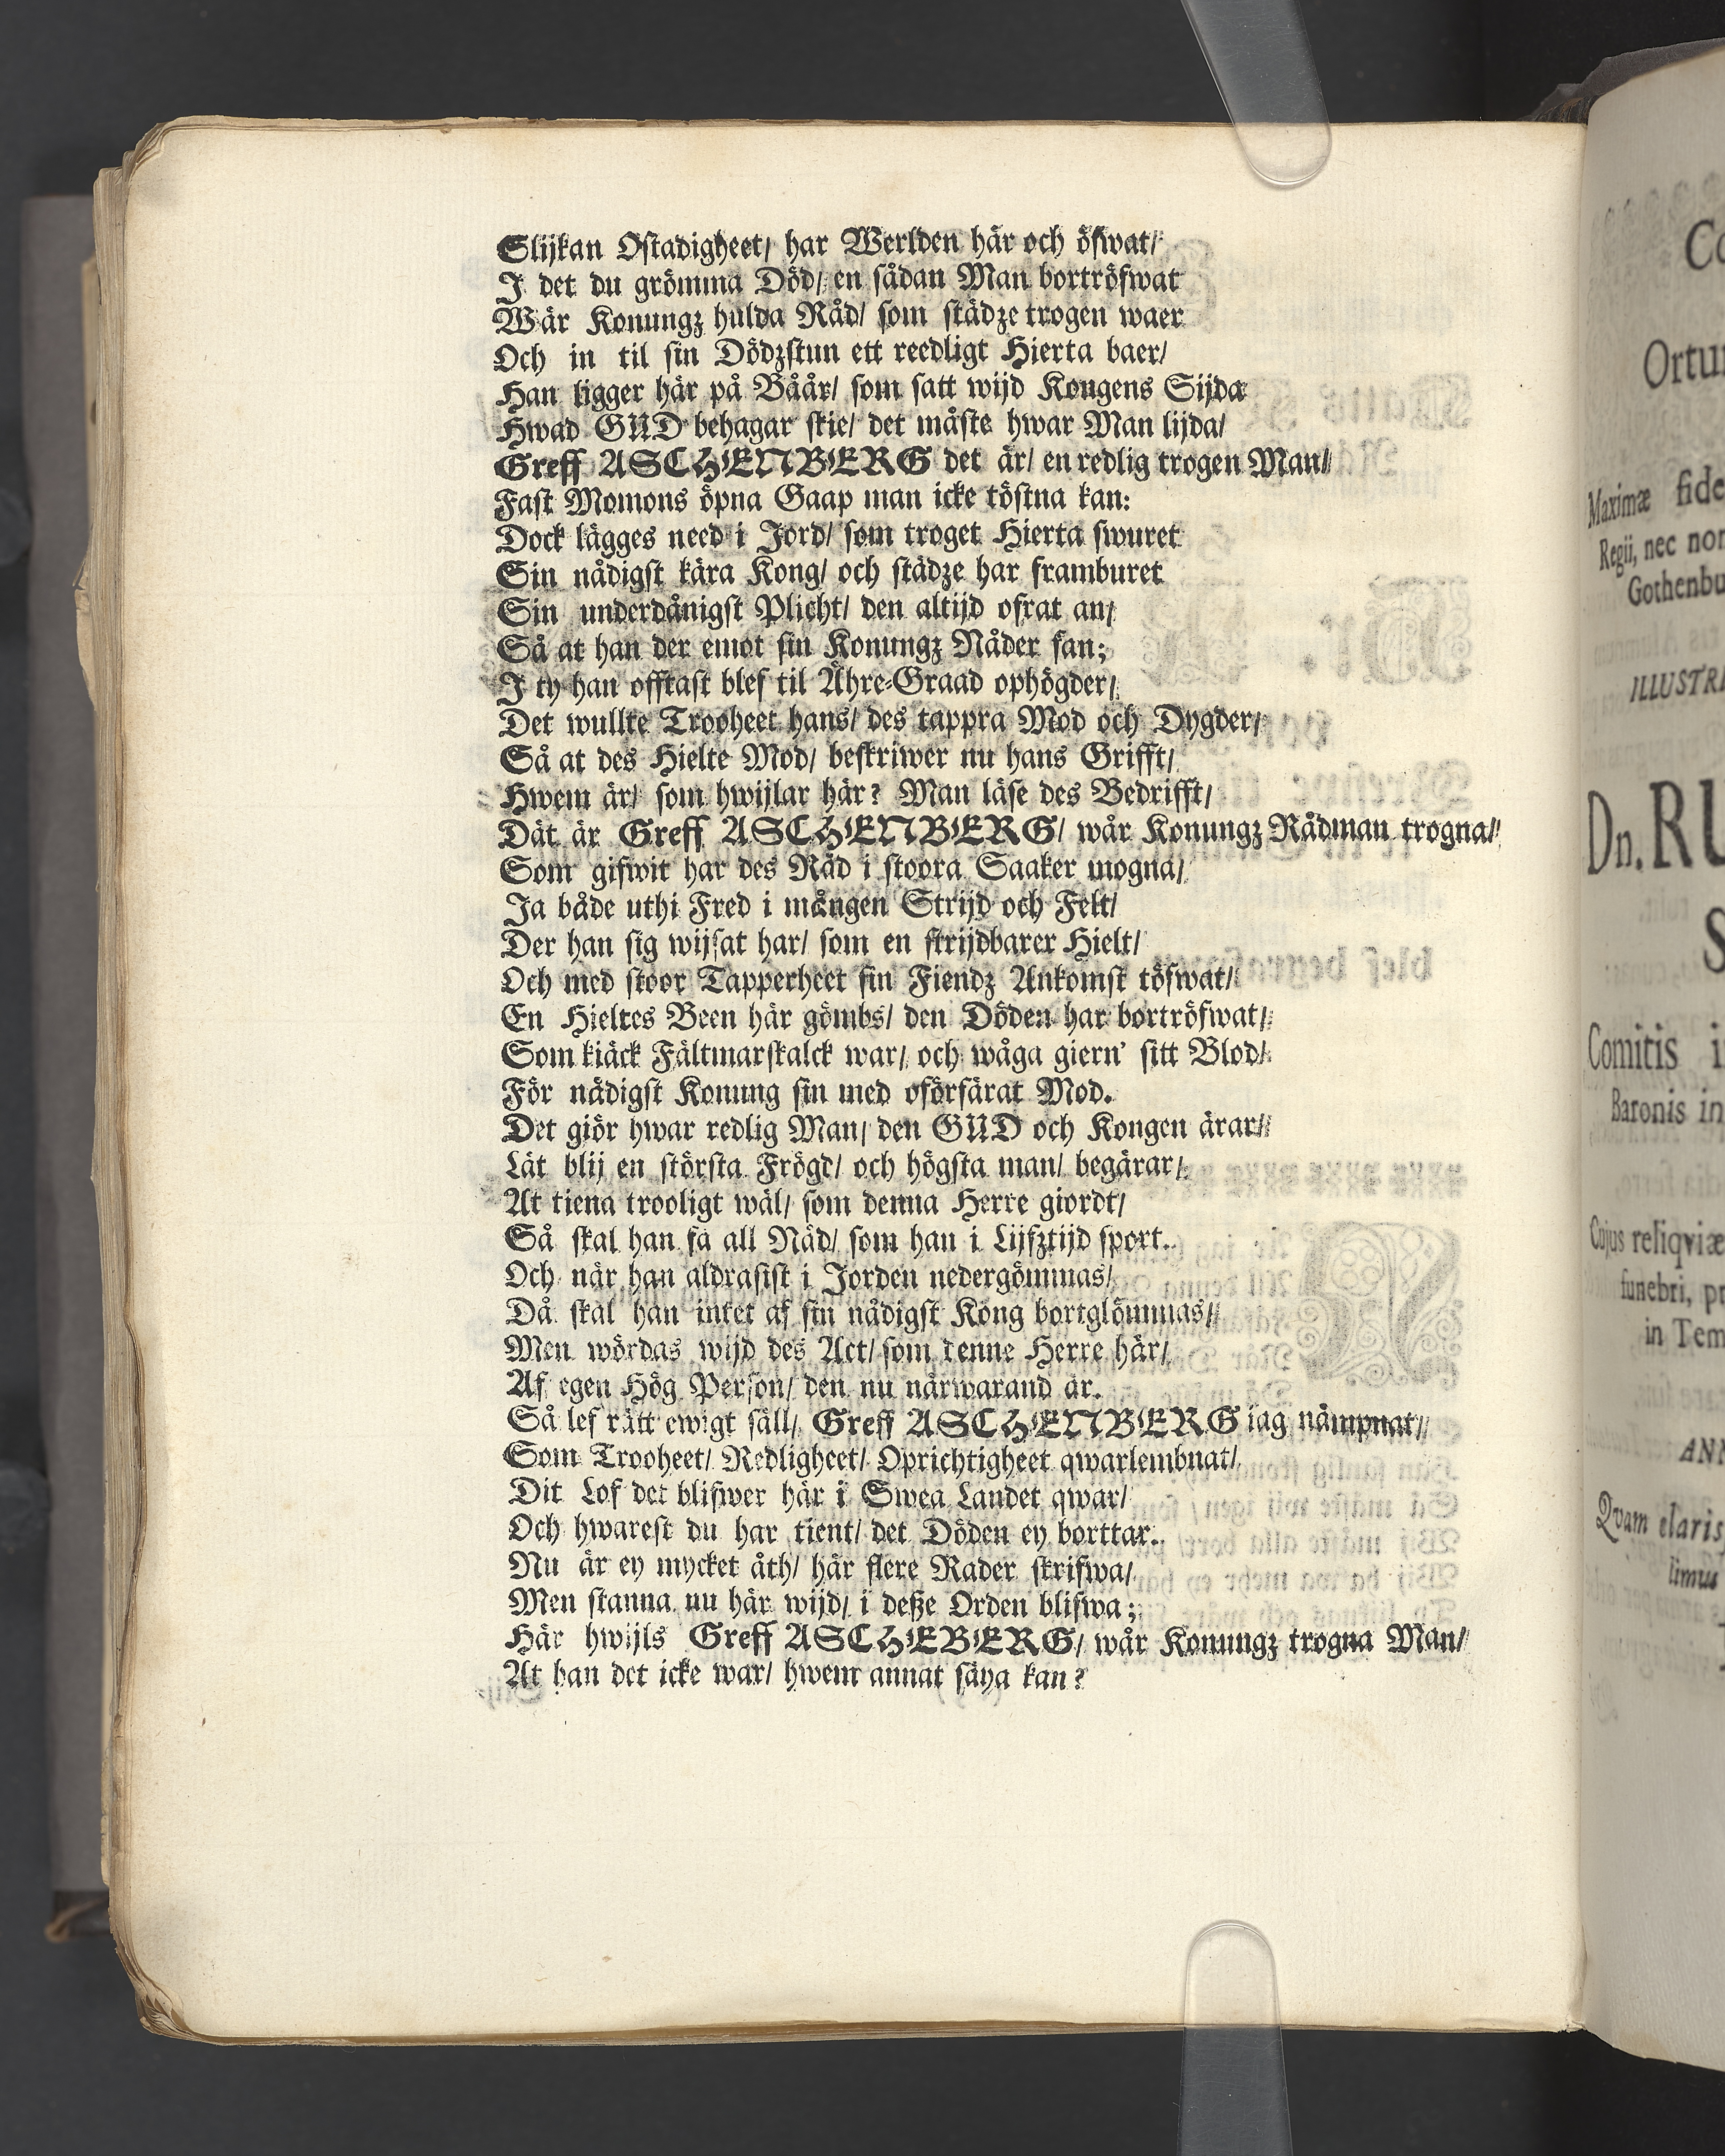 Slijkan Ostadigheet/ har Werlden här och öfwat/
I det du grömma Död/ en sådan Man bortröfwat
Wår Konungz hulda Råd/ som städze trogen waer
Och in til sin Dödzstun ett reedligt Hierta baer/
Han ligger här på Båår/ som satt wijd Kongens Sijda
Hwad GUD behagar skie/ det måste hwar Man lijda/
Greff ASCHENBERG det är/ en redlig trogen Man/
Fast Momons öpna Gaap man icke töstna kan:
Dock lägges need i Jord/ som troget Hierta swuret
Sin nådigst kära Kong/ och städze har framburet
Sin underdånigst Plicht/ den altijd ofrat an/
Så at han der emot sin Konungz Nåder fan;
I ty han offtast blef til Ähre-Graad ophögder/
Det wullte Trooheet hans/ des tappra Mod och Dygder/
Så at des Hielte Mod/ beskriwer nu hans Grifft/
Hwem är/ som hwijlar här? Man läse des Bedrifft/
Dät är Greff ASCHENBERG/ wår Konungz Rådman trogna/
Som gifwit har des Råd i stoora Saaker mogna/
Ja både uthi Fred i mången Strijd och Felt/
Der han sig wijsat har/ som en strijdbarer Hielt/
Och med stoor Tapperheet sin Fiendz Ankomst töfwat/
En Hieltes Been här gömbs/ den Döden har bortröfwat/
Som kiäck Fältmarskalck war/ och wåga giern' sitt Blod/
För nådigst Konung sin med oförfärat Mod.
Det giör hwar redlig Man/ den GUD och Kongen ärar/
Låt blij en största Frögd/ och högsta man/ begärar/
At tiena trooligt wäl/ som denna Herre giordt/
Så skal han få all Nåd/ som han i Lijfztijd sport.
Och när han aldrasist i Jorden nedergömmas/
Då skal han intet af sin nådigst Kong bortglömmas/
Men wördas wijd des Act/ som denne Herre här/
Af egen Hög Person/ den nu närwarand är.
Så lef rätt ewigt säll/ Greff ASCHENBERG iag nämpnat/
Som Trooheet/ Redligheet/ Oprichtigheet qwarlembnat/
Dit Lof det blifwer här i Swea Landet qwar/
Och hwarest du har tient/ det Döden ey borttar.
Nu är ey mycket åth/ här flere Rader skrifwa/
Men stanna nu här wijd/ i deße Orden blifwa;
Här hwijls Greff ASCHEBERG/ wår Konungz trogna Man/
At han det icke war/ hwem annat säya kan?
Ortu
Maximæ fide
Regii, nec non
Gothenbu
ILLUSTRI
Dn. RU
S
Comitis i
Baronis in
Cujus reliqviæ
funebri, pr
in Tem
ANN
Qvam claris
limus